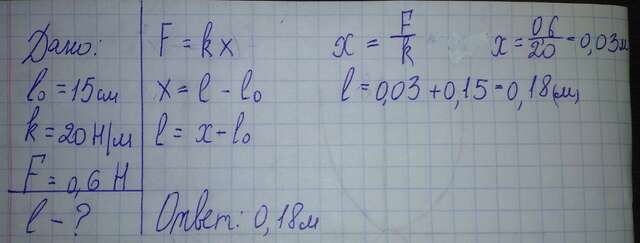 Дано:
l₀ = 15 см
k = 20 Н/м
F = 0,6 Н
l - ?
F = kx
x = l - l₀
l = x - l₀
x = F/k
x = 06/20 = 0,03 м
l = 0,03 + 0,15 = 0,18 (м)
Ответ: 0,18 м